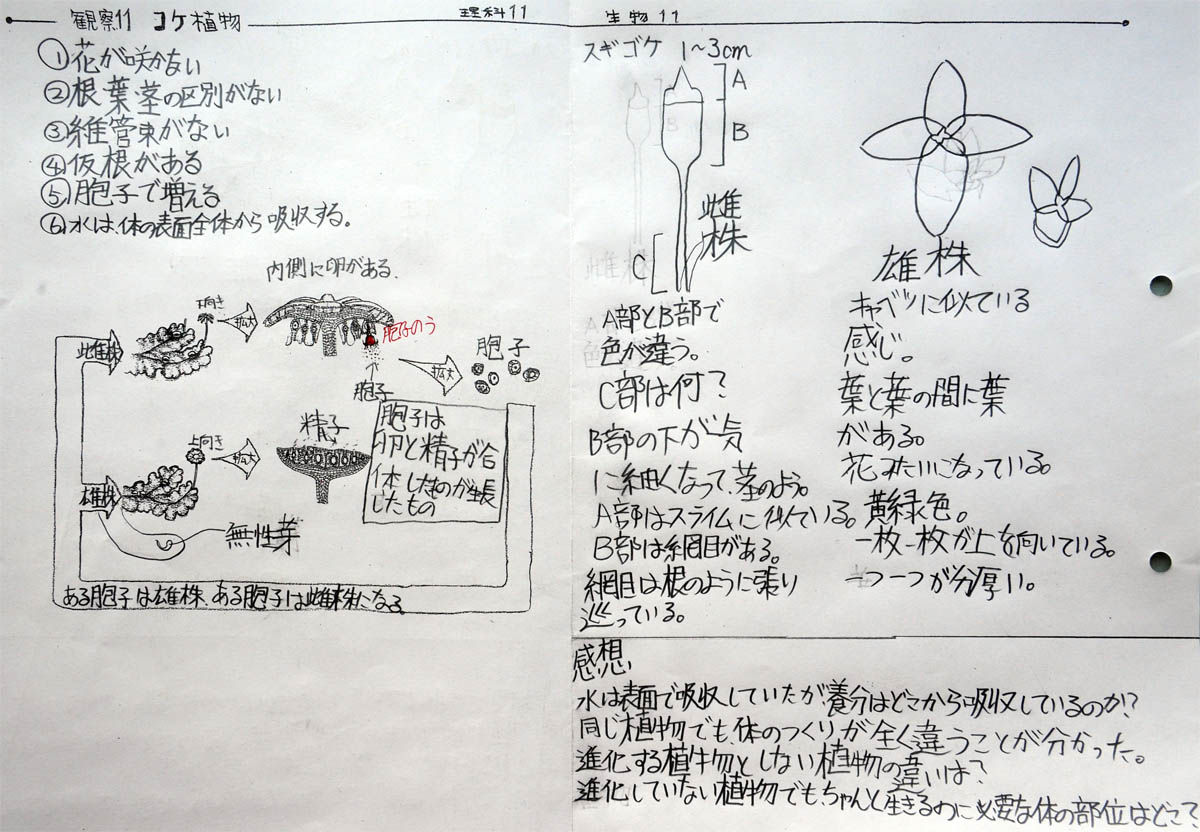 観察11 コケ植物
理科11
①花が咲かない
②根葉茎の区別がない
③維管束がない
④仮根がある
⑤胞子で増える
⑥水は、体の表面全体から吸収する。
内側に卵がある。
下向き
拡大
雌株
胞子のう
拡大
胞子
胞子
精子
上向き
拡大
雄株
無性芽
胞子は
卵と精子が合
体したものが生長
したもの
ある胞子は雄株、ある胞子は雌株になる
生物11
スギゴケ 1~3cm
A
B
C
雌株
A部とB部で
色が違う。
C部は何?
B部の下が気
に細くなって、茎のよう。
A部はスライムに似ている。
B部は網目がある。
網目は根のように張り
巡っている。
雄株
キャベツに似ている
感じ。
葉と葉の間に葉
がある。
花みたいになっている。
黄緑色。
一枚一枚が上を向いている。
一つ一つが分厚い。
感想
水は表面で吸収していたが養分はどこから吸収しているのか?
同じ植物でも、体のつくりが全く違うことが分かった。
進化する植物としない植物の違いは?
進化していない植物でも、ちゃんと生きるのに必要な体の部位はどこ?